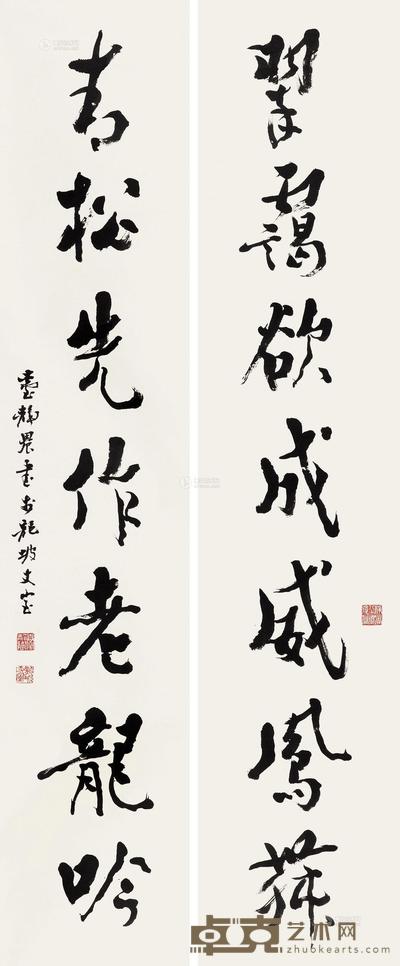 翠靄欲成威鳳舞
青松先作老龍吟
臺靜農書於龍坡丈室
卓克艺术网
zhuokearts.com